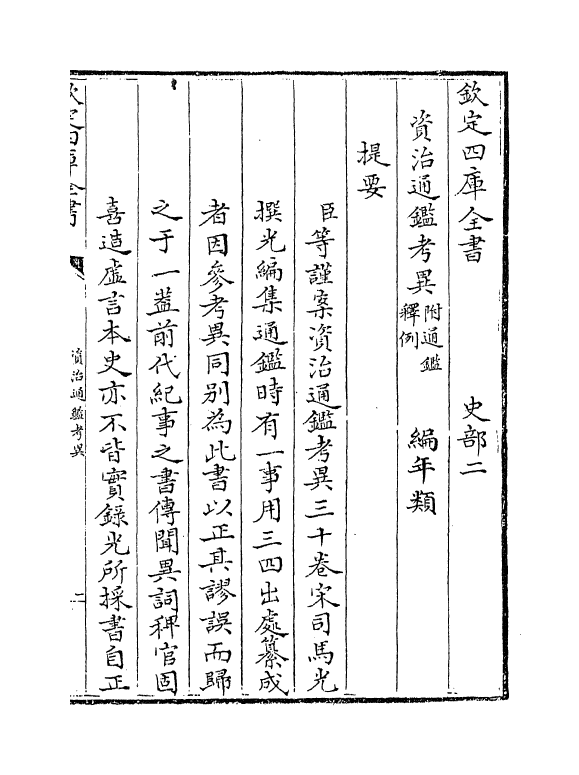 欽定四庫全書　　　史部二
資治通鑑考異附通鑑釋例　　編年類
提要
臣等謹案資治通鑑考異三十卷宋司馬光
撰光編集通鑑時有一事用三四出處纂成
者因參考異同别為此書以正其謬誤而歸
之于一蓋前代紀事之書傳聞異詞稗官固
喜造虛言本史亦不皆實錄光所採書自正
欽定四庫全書
資治通鑑考異